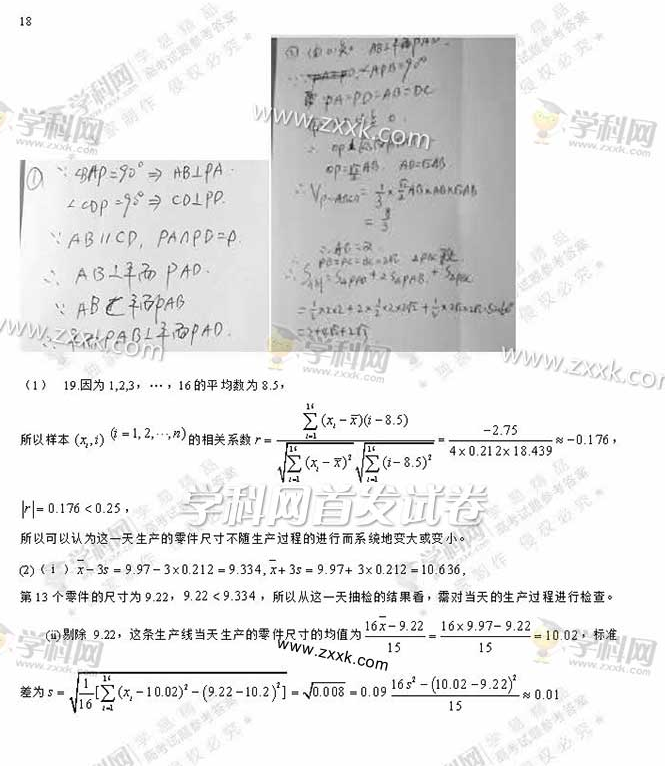 18
① ∵ ∠BAP=90° ⇒ AB⊥PA.
∠CDP=90° ⇒ CD⊥PD.
∵ AB∥CD, PA∩PD=P.
∴ AB⊥平面 PAD.
∵ AB⊂平面PAB
∴ 平面PAB⊥平面PAD.
∠APD=90°
PA=PD=AB=DC
AD=√2AB
= 8/3
∴ AB=2
=2+4√2+2√3
(1) 19.因为 1,2,3,⋯,16 的平均数为 8.5,
所以样本 (x_i,i) (i=1,2,⋯,n) 的相关系数 r = \frac{\sum_{i=1}^{16}(x_i-\overline{x})(i-8.5)}{\sqrt{\sum_{i=1}^{16}(x_i-\overline{x})^2}\sqrt{\sum_{i=1}^{16}(i-8.5)^2}} = \frac{-2.75}{4×0.212×18.439} ≈ -0.176,
|r| = 0.176 < 0.25,
所以可以认为这一天生产的零件尺寸不随生产过程的进行而系统地变大或变小。
(2)(i) \overline{x}-3s = 9.97-3×0.212 = 9.334, \overline{x}+3s = 9.97+3×0.212 = 10.636,
第 13 个零件的尺寸为 9.22, 9.22<9.334, 所以从这一天抽检的结果看,需对当天的生产过程进行检查。
(ii)剔除 9.22,这条生产线当天生产的零件尺寸的均值为 \frac{16\overline{x}-9.22}{15} = \frac{16×9.97-9.22}{15} = 10.02, 标准
差为 s = \sqrt{\frac{1}{16}[\sum_{i=1}^{16}(x_i-10.02)^2-(9.22-10.2)^2]} = \sqrt{0.008} = 0.09 \frac{16s^2-(10.02-9.22)^2}{15} ≈ 0.01
学科网首发试卷
学科网
www.zxxk.com
侵权必究